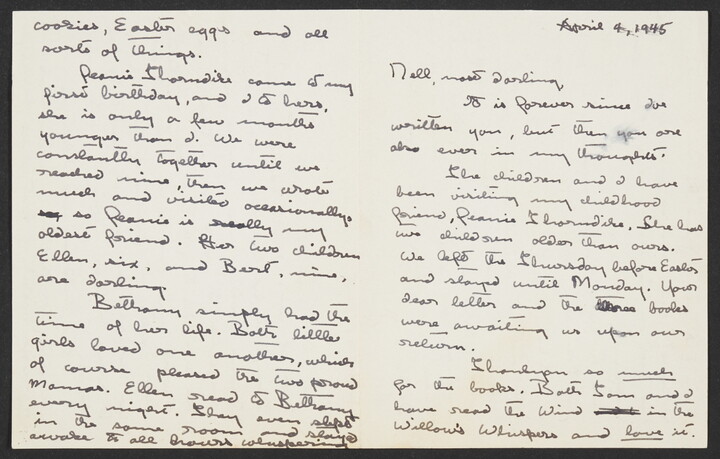 April 4, 1945
Nell, most darling,
It is forever since I've
written you, but then you are
also ever in my thoughts.
The children and I have
been visiting my childhood
friend, Jeanie Thorndike. She has
two children older than ours.
We left the Thursday before Easter
and stayed until Monday. Your
dear letter and the three books
were awaiting us upon our
return.
Thankyou so much
for the books. Both Tom and I
have read the Wind in the
Willow's Whispers and love it.
cookies, Easter eggs and all
sorts of things.
Jeanie Thorndike came to my
first birthday, and I to hers,
she is only a few months
younger than I. We were
constantly together until we
reached nine, then we wrote
much and visited occasionally.
so Jeanie is really my
oldest friend. Her two children
Ellen, six, and Bert, nine,
are darling.
Bethany simply had the
time of her life. Both little
girls loved one another, which
of course pleased the two proud
Mamas. Ellen read to Bethany
every night. They even slept
in the same room and stayed
awake to all hours whispering